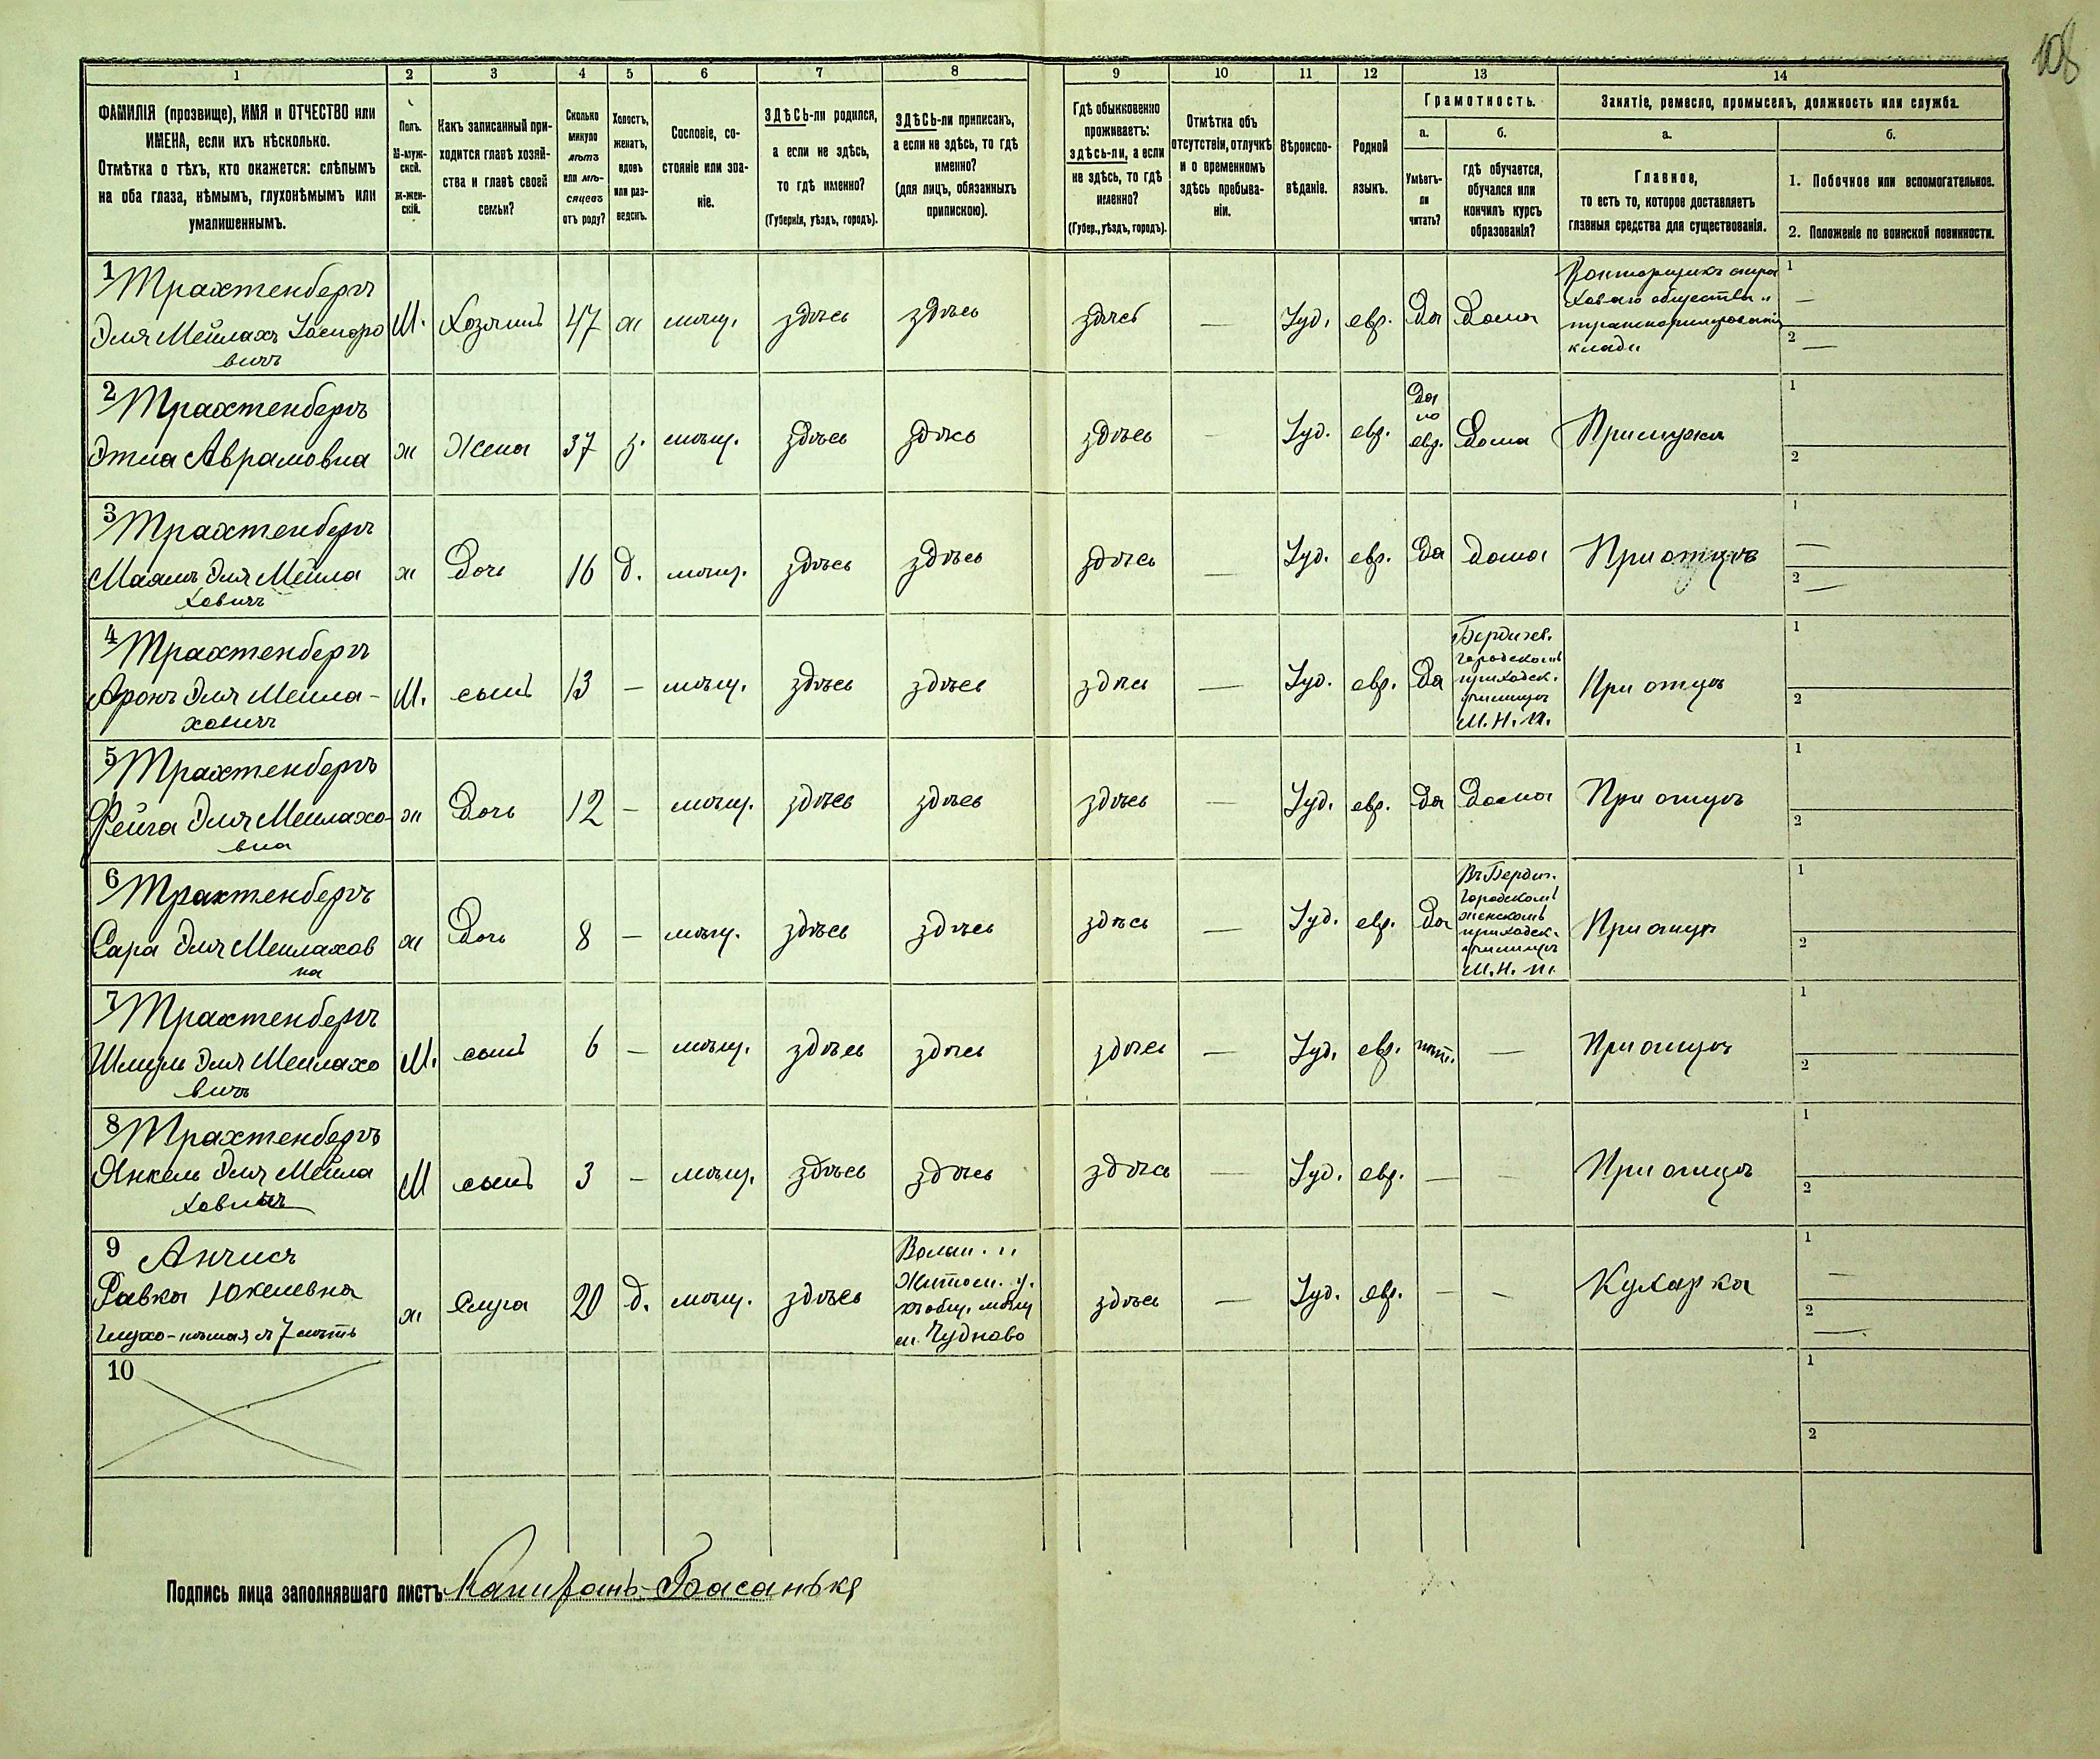 108
1 2 3 4 5 6 7 8 9 10 11 12 13 14
ФАМИЛІЯ (прозвище), ИМЯ и ОТЧЕСТВО или
ИМЕНА, если ихъ нѣсколько.
Отмѣтка о тѣхъ, кто окажется: слѣпымъ
на оба глаза, нѣмымъ, глухонѣмымъ или
умалишеннымъ.
Полъ.
М-муж-
ской.
Ж-жен-
скій.
Какъ записанный при-
ходится главѣ хозяй-
ства и главѣ своей
семьи?
Сколько
минуло
лѣтъ
или мѣ-
сяцевъ
отъ роду?
Холостъ,
женатъ,
вдовъ
или раз-
веденъ.
Сословіе, со-
стояніе или зва-
ніе.
ЗДѢСЬ-ли родился,
а если не здѣсь,
то гдѣ именно?
(Губернія, уѣздъ, городъ).
ЗДѢСЬ-ли приписанъ,
а если не здѣсь, то гдѣ
именно?
(для лицъ, обязанныхъ
припискою).
Гдѣ обыкновенно
проживаетъ:
здѣсь-ли, а если
не здѣсь, то гдѣ
именно?
(Губер., уѣздъ, городъ).
Отмѣтка объ
отсутствіи, отлучкѣ
и о временномъ
здѣсь пребыва-
ніи.
Вѣроиспо-
вѣданіе.
Родной
языкъ.
Грамотность.
а.
Умѣетъ-
ли
читать?
б.
гдѣ обучается,
обучался или
кончилъ курсъ
образованія?
Занятіе, ремесло, промыселъ, должность или служба.
а.
Главное,
то есть то, которое доставляетъ
главныя средства для существованія.
б.
1. Побочное или вспомогательное.
2. Положеніе по воинской повинности.
1 Трахтенбергъ
Эля Мейлахъ Іосиоро
вичъ
М. Хозяинъ 47 ж мѣщ. здѣсь здѣсь здѣсь — Іуд. евр. Да Дома
Конторщикъ стра
ховаго общества и
транспортированія
клади
1 —
2 —
2 Трахтенбергъ
Этля Аврамовна
ж Жена 37 з. мѣщ. здѣсь здѣсь здѣсь — Іуд. евр.
Да
по
евр.
Дома При мужѣ
1
2
3 Трахтенбергъ
Маямъ Эля Мейла
ховичъ
ж Дочь 16 д. мѣщ. здѣсь здѣсь здѣсь — Іуд. евр. Да дома При отцѣ
1 —
2 —
4 Трахтенбергъ
Аронъ Эля Мейла-
ховичъ
М. сынъ 13 — мѣщ. здѣсь здѣсь здѣсь — Іуд. евр. Да
Бердичев.
городскомъ
приходск.
училищѣ
М. Н. П.
При отцѣ
1
2
5 Трахтенбергъ
Фейга Эля Мейлахо-
вна
ж Дочь 12 — мѣщ. здѣсь здѣсь здѣсь — Іуд. евр. Да Дома При отцѣ
1
2
6 Трахтенбергъ
Сара Эля Мейлахов
на
ж Дочь 8 — мѣщ. здѣсь здѣсь здѣсь — Іуд. евр. Да
Въ Бердич.
городскомъ
женскомъ
приходск.
училищѣ
М. Н. П.
При отцѣ
1
2
7 Трахтенбергъ
Шмуль Эля Мейлахо
вичъ
М. сынъ 6 — мѣщ. здѣсь здѣсь здѣсь — Іуд. евр. нѣт. — При отцѣ
1
2
8 Трахтенбергъ
Янкель Эля Мейла
ховичъ
М сынъ 3 — мѣщ. здѣсь здѣсь здѣсь — Іуд. евр. — — При отцѣ
1
2
9 Анчисъ
Равка Юкелевна
глухо-нѣмая съ 7 лѣтъ
ж Слуга 20 д. мѣщ. здѣсь
Волын. г.
Житом. у.
къ общ. мѣщ
м. Чудново
здѣсь — Іуд. евр. — — Кухарка
1 —
2 —
10
1
2
Подпись лица заполнявшаго листъ